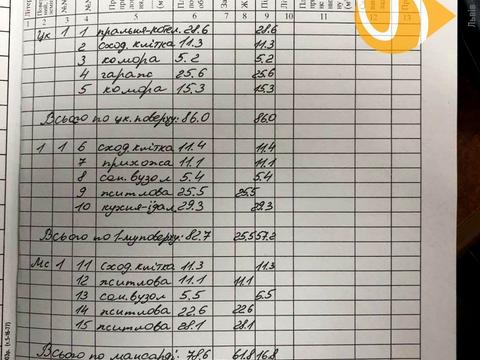 2 3 4 5 6 7 8 9 10 12
цк 1 1 пральня-котел. 28.6 28.6
2 сход. клітка 11.3 11.3
3 комора 5.2 5.2
4 гараж 25.6 25.6
5 комора 15.3 15.3
Всього по цк. поверху: 86.0 86.0
1 1 6 сход. клітка 11.4 11.4
7 прихожа 11.1 11.1
8 сан. вузол 5.4 5.4
9 житлова 25.5 25.5
10 кухня-їдал 29.3 29.3
Всього по 1-му поверху: 82.7 25.5 57.2
Мс 1 11 сход. клітка 11.3 11.3
12 житлова 11.1 11.1
13 сан. вузол 5.5 5.5
14 житлова 22.6 22.6
15 житлова 28.1 28.1
Всього по мансарді: 78.6 61.8 16.8
Львів